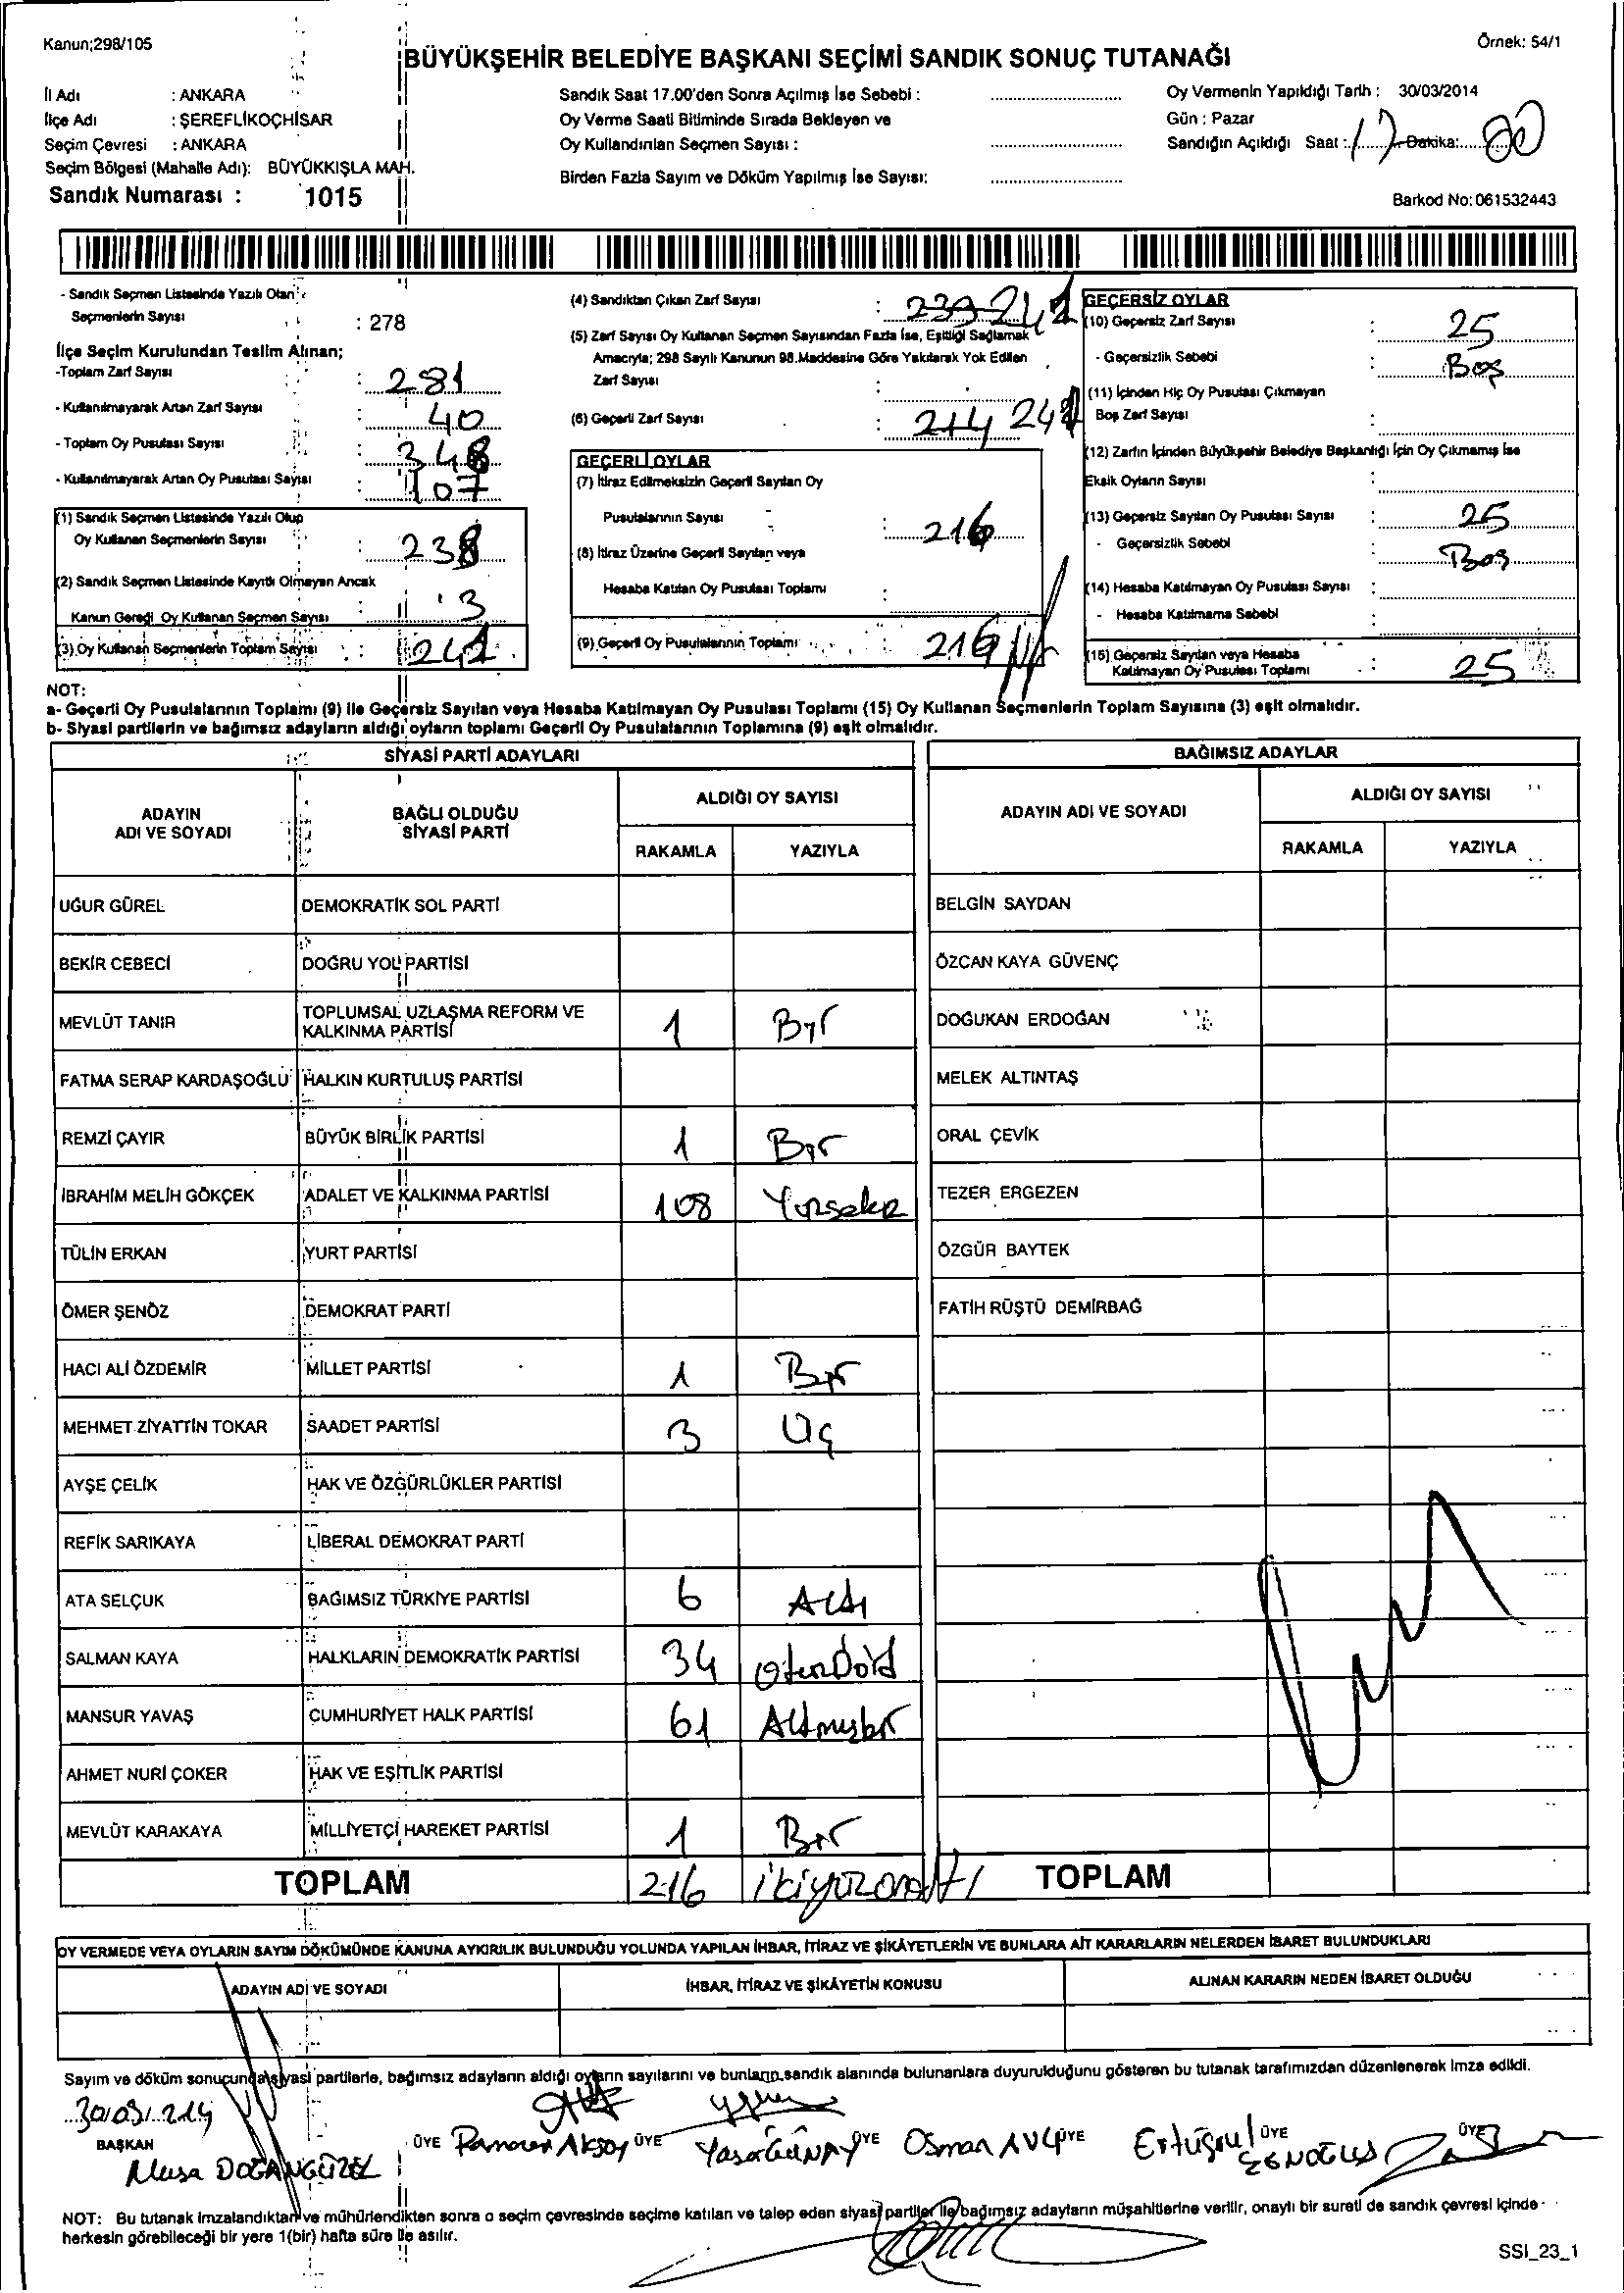 Kanun;298/105
Örnek: 54/1
BÜYÜKŞEHİR BELEDİYE BAŞKANI SEÇİMİ SANDIK SONUÇ TUTANAĞI
İl Adı : ANKARA
İlçe Adı : ŞEREFLİKOÇHİSAR
Seçim Çevresi : ANKARA
Seçim Bölgesi (Mahalle Adı): BÜYÜKKIŞLA MAH.
Sandık Numarası : 1015
Sandık Saat 17.00'den Sonra Açılmış İse Sebebi :
Oy Verme Saati Bitiminde Sırada Bekleyen ve
Oy Kullandırılan Seçmen Sayısı :
Birden Fazla Sayım ve Döküm Yapılmış İse Sayısı:
Oy Vermenin Yapıldığı Tarih : 30/03/2014
Gün : Pazar
Sandığın Açıldığı Saat : 17 Dakika: 00
Barkod No: 061532443
- Sandık Seçmen Listesinde Yazılı Olan
Seçmenlerin Sayısı : 278
İlçe Seçim Kurulundan Teslim Alınan;
-Toplam Zarf Sayısı : 281
- Kullanılmayarak Artan Zarf Sayısı : 40
- Toplam Oy Pusulası Sayısı : 348
- Kullanılmayarak Artan Oy Pusulası Sayısı : 107
(1) Sandık Seçmen Listesinde Yazılı Olup
Oy Kullanan Seçmenlerin Sayısı : 238
(2) Sandık Seçmen Listesinde Kayıtlı Olmayan Ancak
Kanun Gereği Oy Kullanan Seçmen Sayısı : 3
(3) Oy Kullanan Seçmenlerin Toplam Sayısı : 241
(4) Sandıktan Çıkan Zarf Sayısı : 239 241
(5) Zarf Sayısı Oy Kullanan Seçmen Sayısından Fazla İse, Eşitliği Sağlamak
Amacıyla; 298 Sayılı Kanunun 98.Maddesine Göre Yakılarak Yok Edilen
Zarf Sayısı :
(6) Geçerli Zarf Sayısı : 214 241
GEÇERLİ OYLAR
(7) İtiraz Edilmeksizin Geçerli Sayılan Oy
Pusulalarının Sayısı : 216
(8) İtiraz Üzerine Geçerli Sayılan veya
Hesaba Katılan Oy Pusulası Toplamı :
(9) Geçerli Oy Pusulalarının Toplamı : 216
GEÇERSİZ OYLAR
(10) Geçersiz Zarf Sayısı : 25
- Geçersizlik Sebebi : Boş
(11) İçinden Hiç Oy Pusulası Çıkmayan
Boş Zarf Sayısı :
(12) Zarfın İçinden Büyükşehir Belediye Başkanlığı İçin Oy Çıkmamış İse
Eksik Oyların Sayısı :
(13) Geçersiz Sayılan Oy Pusulası Sayısı : 25
- Geçersizlik Sebebi : Boş
(14) Hesaba Katılmayan Oy Pusulası Sayısı :
- Hesaba Katılmama Sebebi :
(15) Geçersiz Sayılan veya Hesaba
Katılmayan Oy Pusulası Toplamı : 25
NOT:
a- Geçerli Oy Pusulalarının Toplamı (9) ile Geçersiz Sayılan veya Hesaba Katılmayan Oy Pusulası Toplamı (15) Oy Kullanan Seçmenlerin Toplam Sayısına (3) eşit olmalıdır.
b- Siyasi partilerin ve bağımsız adayların aldığı oyların toplamı Geçerli Oy Pusulalarının Toplamına (9) eşit olmalıdır.
SİYASİ PARTİ ADAYLARI
ADAYIN ADI VE SOYADI
BAĞLI OLDUĞU SİYASİ PARTİ
ALDIĞI OY SAYISI
RAKAMLA YAZIYLA
UĞUR GÜREL DEMOKRATİK SOL PARTİ
BEKİR CEBECİ DOĞRU YOL PARTİSİ
MEVLÜT TANIR TOPLUMSAL UZLAŞMA REFORM VE KALKINMA PARTİSİ 1 Bir
FATMA SERAP KARDAŞOĞLU HALKIN KURTULUŞ PARTİSİ
REMZİ ÇAYIR BÜYÜK BİRLİK PARTİSİ 1 Bir
İBRAHİM MELİH GÖKÇEK ADALET VE KALKINMA PARTİSİ 108 Yüzsekiz
TÜLİN ERKAN YURT PARTİSİ
ÖMER ŞENÖZ DEMOKRAT PARTİ
HACI ALİ ÖZDEMİR MİLLET PARTİSİ 1 Bir
MEHMET ZİYATTİN TOKAR SAADET PARTİSİ 3 Üç
AYŞE ÇELİK HAK VE ÖZGÜRLÜKLER PARTİSİ
REFİK SARIKAYA LİBERAL DEMOKRAT PARTİ
ATA SELÇUK BAĞIMSIZ TÜRKİYE PARTİSİ 6 Altı
SALMAN KAYA HALKLARIN DEMOKRATİK PARTİSİ 34 otuzDört
MANSUR YAVAŞ CUMHURİYET HALK PARTİSİ 61 Altmışbir
AHMET NURİ ÇOKER HAK VE EŞİTLİK PARTİSİ
MEVLÜT KARAKAYA MİLLİYETÇİ HAREKET PARTİSİ 1 Bir
TOPLAM 216 ikiyüzonaltı
BAĞIMSIZ ADAYLAR
ADAYIN ADI VE SOYADI
ALDIĞI OY SAYISI
RAKAMLA YAZIYLA
BELGİN SAYDAN
ÖZCAN KAYA GÜVENÇ
DOĞUKAN ERDOĞAN
MELEK ALTINTAŞ
ORAL ÇEVİK
TEZER ERGEZEN
ÖZGÜR BAYTEK
FATİH RÜŞTÜ DEMİRBAĞ
TOPLAM
OY VERMEDE VEYA OYLARIN SAYIM DÖKÜMÜNDE KANUNA AYKIRILIK BULUNDUĞU YOLUNDA YAPILAN İHBAR, İTİRAZ VE ŞİKÂYETLERİN VE BUNLARA AİT KARARLARIN NELERDEN İBARET BULUNDUKLARI
ADAYIN ADI VE SOYADI
İHBAR, İTİRAZ VE ŞİKÂYETİN KONUSU
ALINAN KARARIN NEDEN İBARET OLDUĞU
Sayım ve döküm sonucunda siyasi partilerle, bağımsız adayların aldığı oyların sayılarını ve bunların sandık alanında bulunanlara duyurulduğunu gösteren bu tutanak tarafımızdan düzenlenerek imza edildi.
30/03/214
BAŞKAN ÜYE ÜYE ÜYE ÜYE ÜYE ÜYE
Musa DOĞANGÜZEL Ramazan Aksoy Yaşar GÜNAY Osman AVCI Ertuğrul
NOT: Bu tutanak imzalandıktan ve mühürlendikten sonra o seçim çevresinde seçime katılan ve talep eden siyasi partiler ile bağımsız adayların müşahitlerine verilir, onaylı bir sureti de sandık çevresi içinde
herkesin görebileceği bir yere 1(bir) hafta süre ile asılır.
SSI_23_1